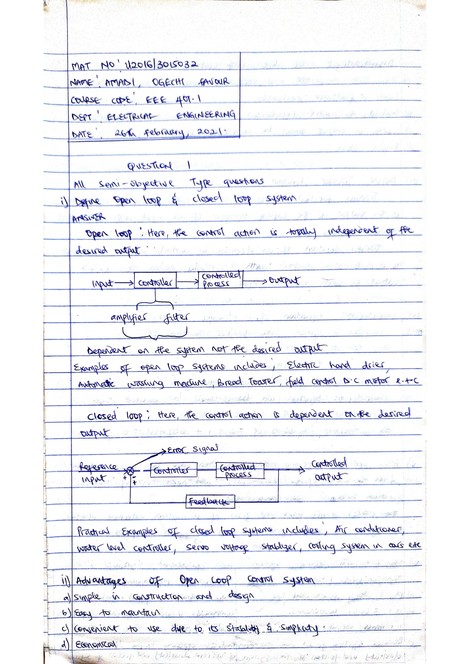 MAT NO: U2016/3015032
NAME: AMADI, OGECHI FAVOUR
COURSE CODE: EEE 401.1
DEPT: ELECTRICAL ENGINEERING
DATE: 26th February, 2021.
QUESTION 1
All Semi-Objective Type questions
i) Define Open loop & closed loop system
ANSWER
Open loop: Here, the control action is totally independent of the
desired output.
Input → Controller → Controlled Process → Output
amplifier filter
Dependent on the system not the desired output
Examples of open loop systems includes; Electric hand drier,
Automatic washing machine, Bread Toaster, field control D.C motor e.t.c
Closed loop: Here, the control action is dependent on the desired
output
Error Signal
Reference input Controller Controlled process Controlled output
Feedback
Practical Examples of closed loop systems includes; Air conditioner,
water level controller, Servo voltage stabilizer, cooling system in cars etc
ii) Advantages of Open Loop Control System
a) Simple in construction and design
b) Easy to maintain
c) Convenient to use due to its Stability & Simplicity.
d) Economical